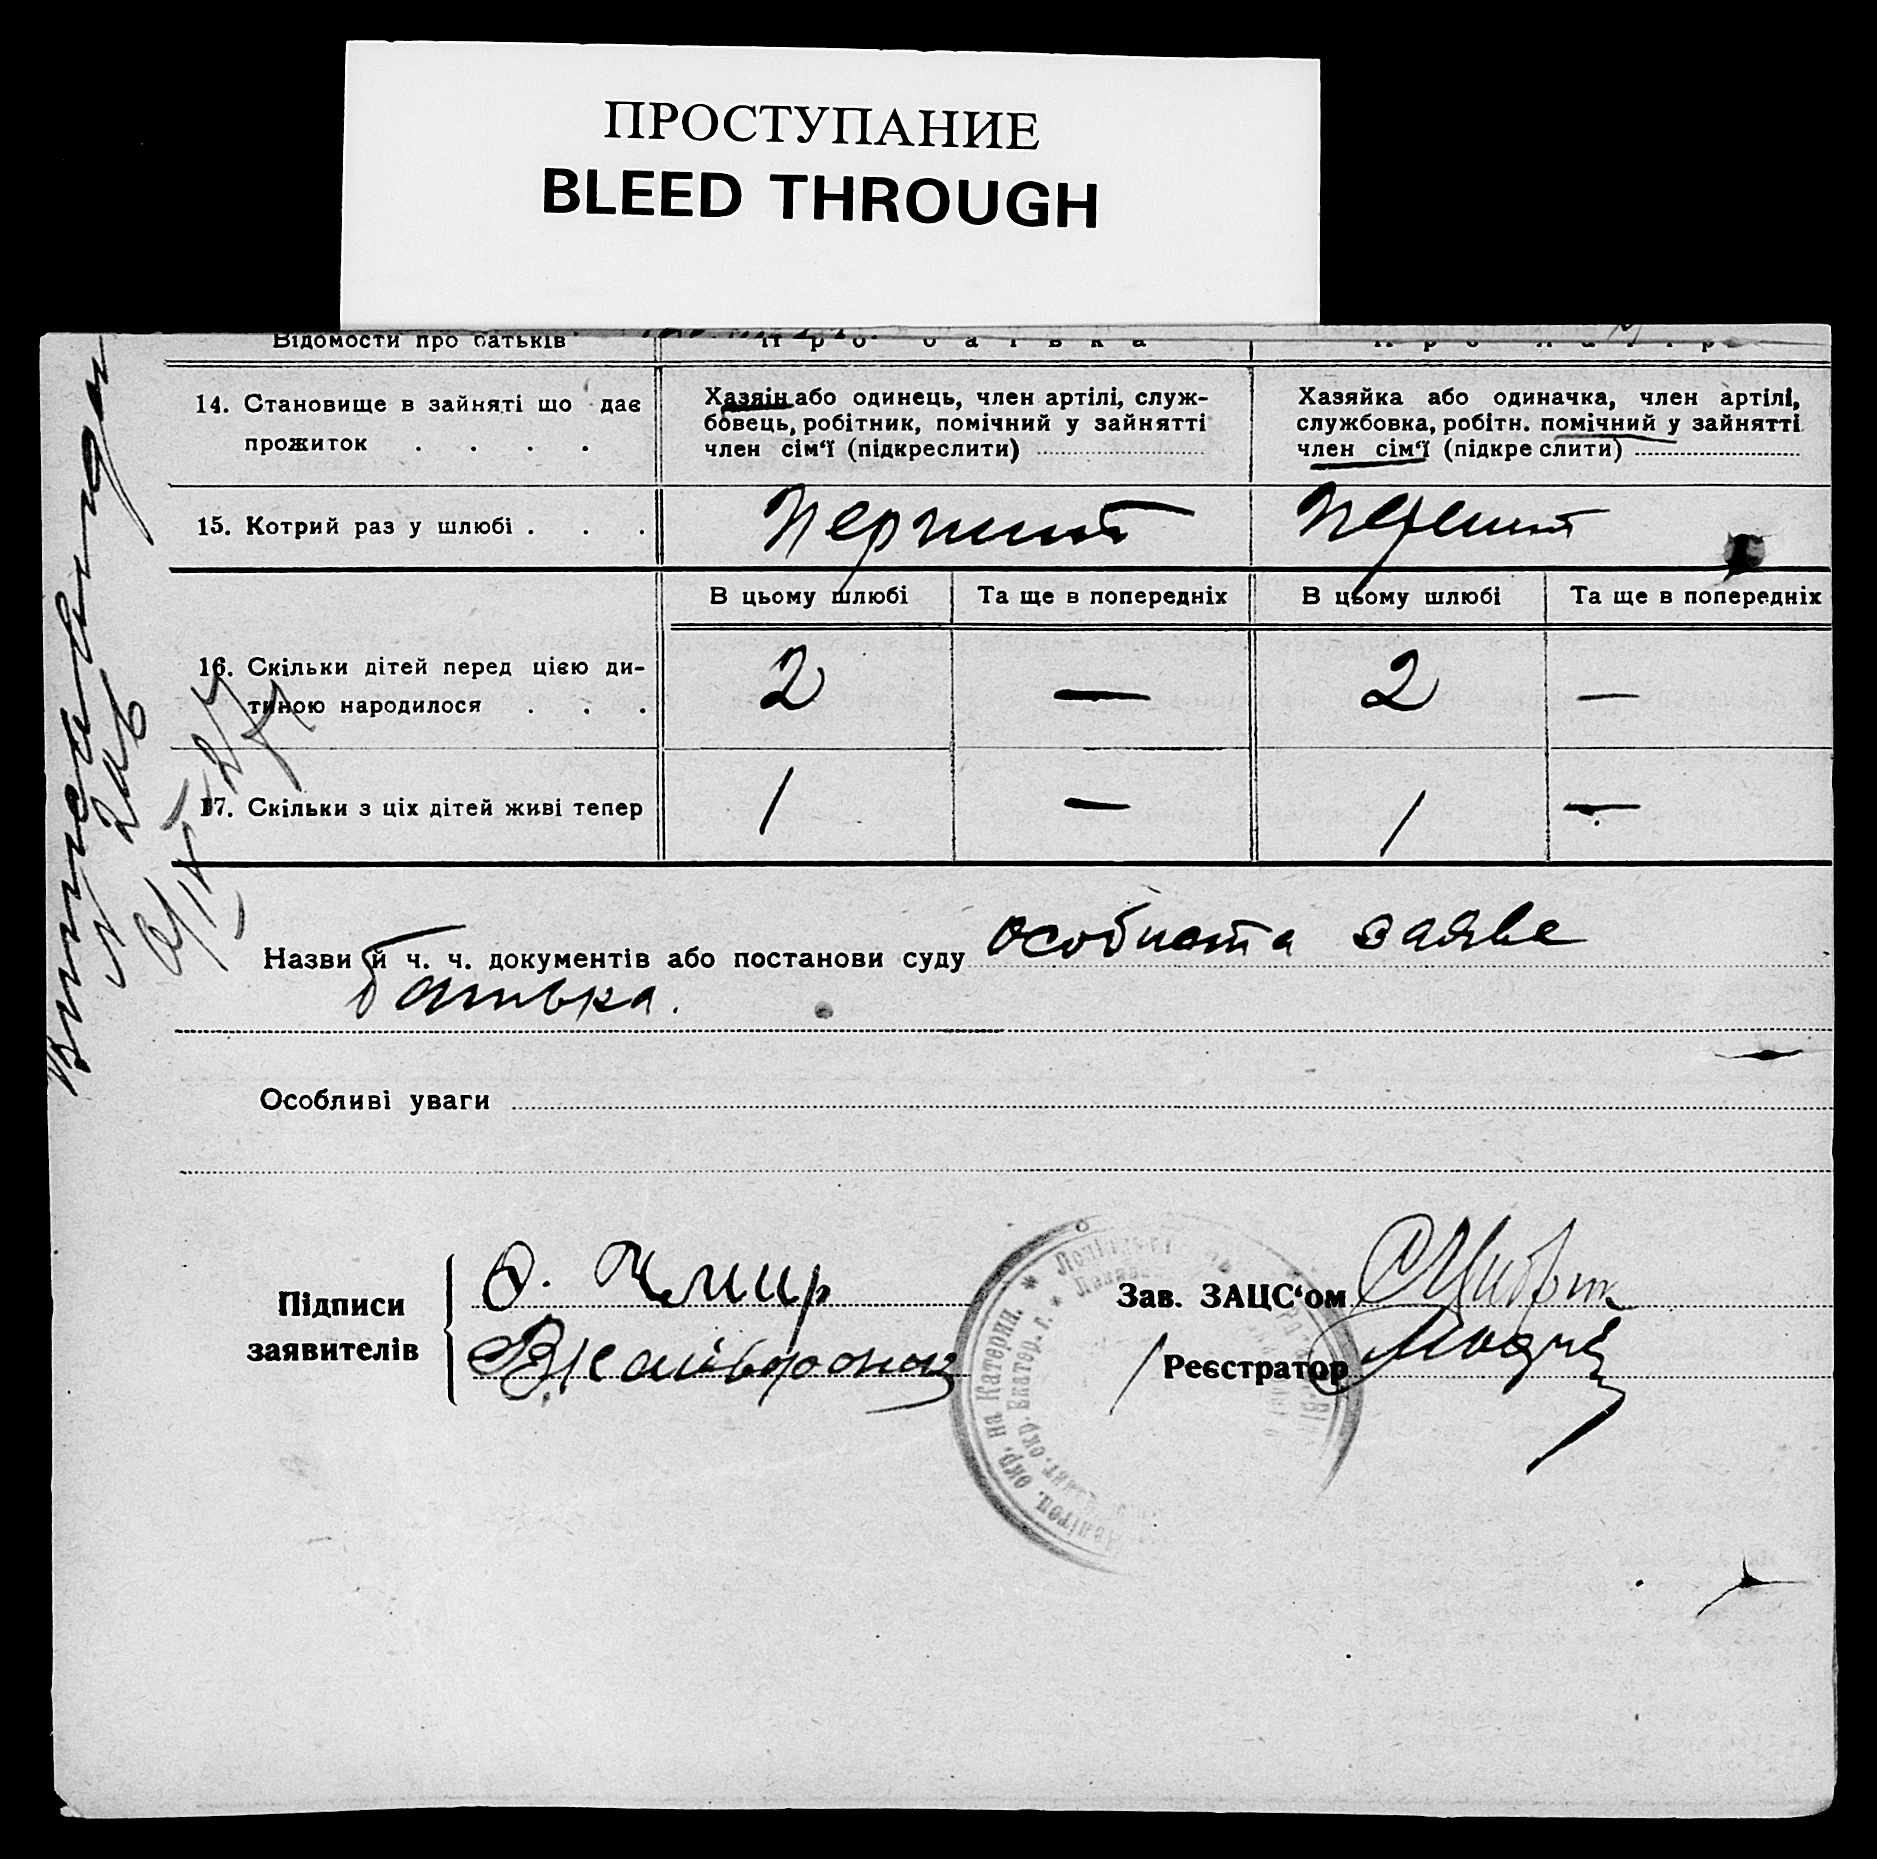 ПРОСТУПАНИЕ
BLEED THROUGH
Відомости про батьків
Про батька
14. Становище в зайняті що дає
прожиток . . . .
Хазяін або одинець, член артілі, служ-
бовець, робітник, помічний у зайнятті
член сім‘ї (підкреслити)
Хазяйка або одиначка, член артілі,
службовка, робітн. помічний у зайнятті
член сім‘ї (підкреслити)
15. Котрий раз у шлюбі . . .
Перший
Перший
В цьому шлюбі
Та ще в попередніх
В цьому шлюбі
Та ще в попередніх
16. Скільки дітей перед цією ди-
тиною народилося . . .
2 — 2 —
17. Скільки з ціх дітей живі тепер
1 — 1 —
Назви й ч. ч. документів або постанови суду особиста заява
батька.
Особливі уваги
Підписи
заявителів
Зав. ЗАЦС‘ом
Реєстратор
окр. на Катерин.